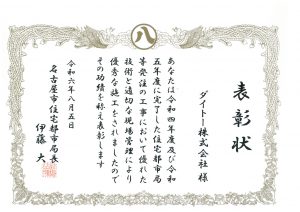 表彰状
ダイトー株式会社 様
あなたは令和四年度及び令和
五年度に完了した住宅都市局
等発注の工事において優れた
技術と適切な現場管理により
優秀な施工をされましたので
その功績を称え表彰します
令和六年八月五日
名古屋市住宅都市局長
伊藤 大